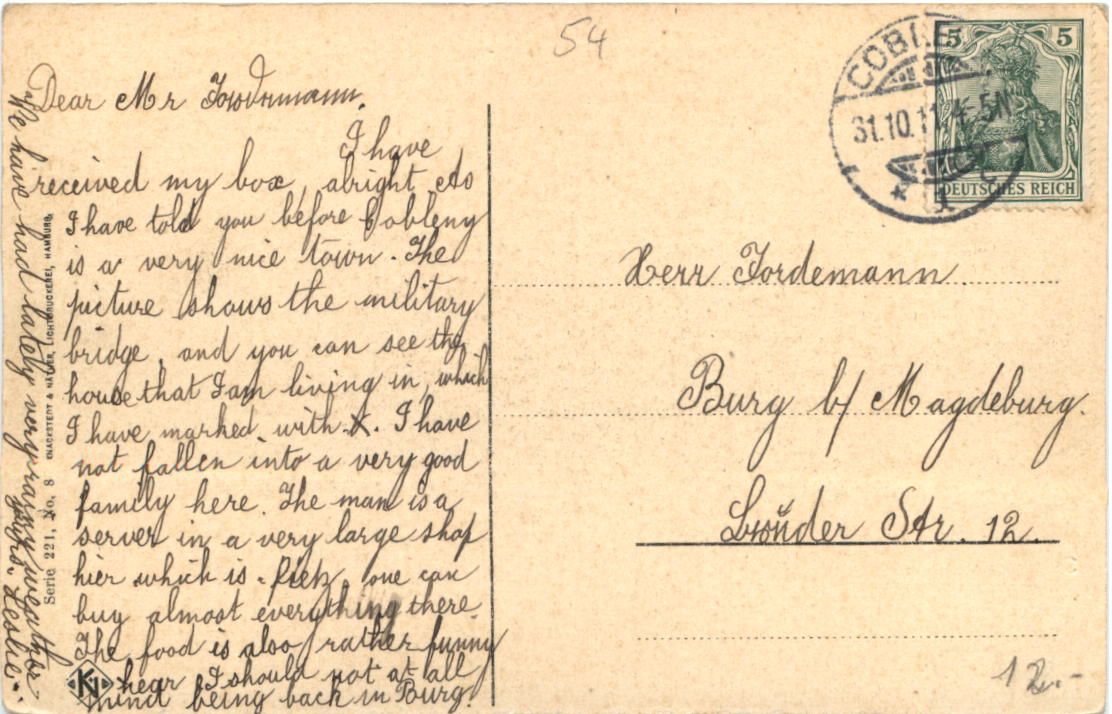 54
Dear Mr
I have
received my box, alright. As
I have told you before Cobleng
is a very nice town. The
picture shows the military
bridge, and you can see the
house that I am living in, which
I have marked with X. I have
not fallen into a very good
family here. The man is a
server in a very large shop
hier which is one can
buy almost everything there
The food is also rather funny
hear I should not at all
mind being back in Burg.
We have had lately very rainy weather
Leslie.
Serie 221, No. 8 KNACKSTEDT & NÄTHER, LICHTDRUCKEREI, HAMBURG.
KN
COBLE
31.10.11. 4-5N
* a
c
5 5
DEUTSCHES REICH
Herr Fordemann.
Burg b/ Magdeburg.
Str. 12.
12.-